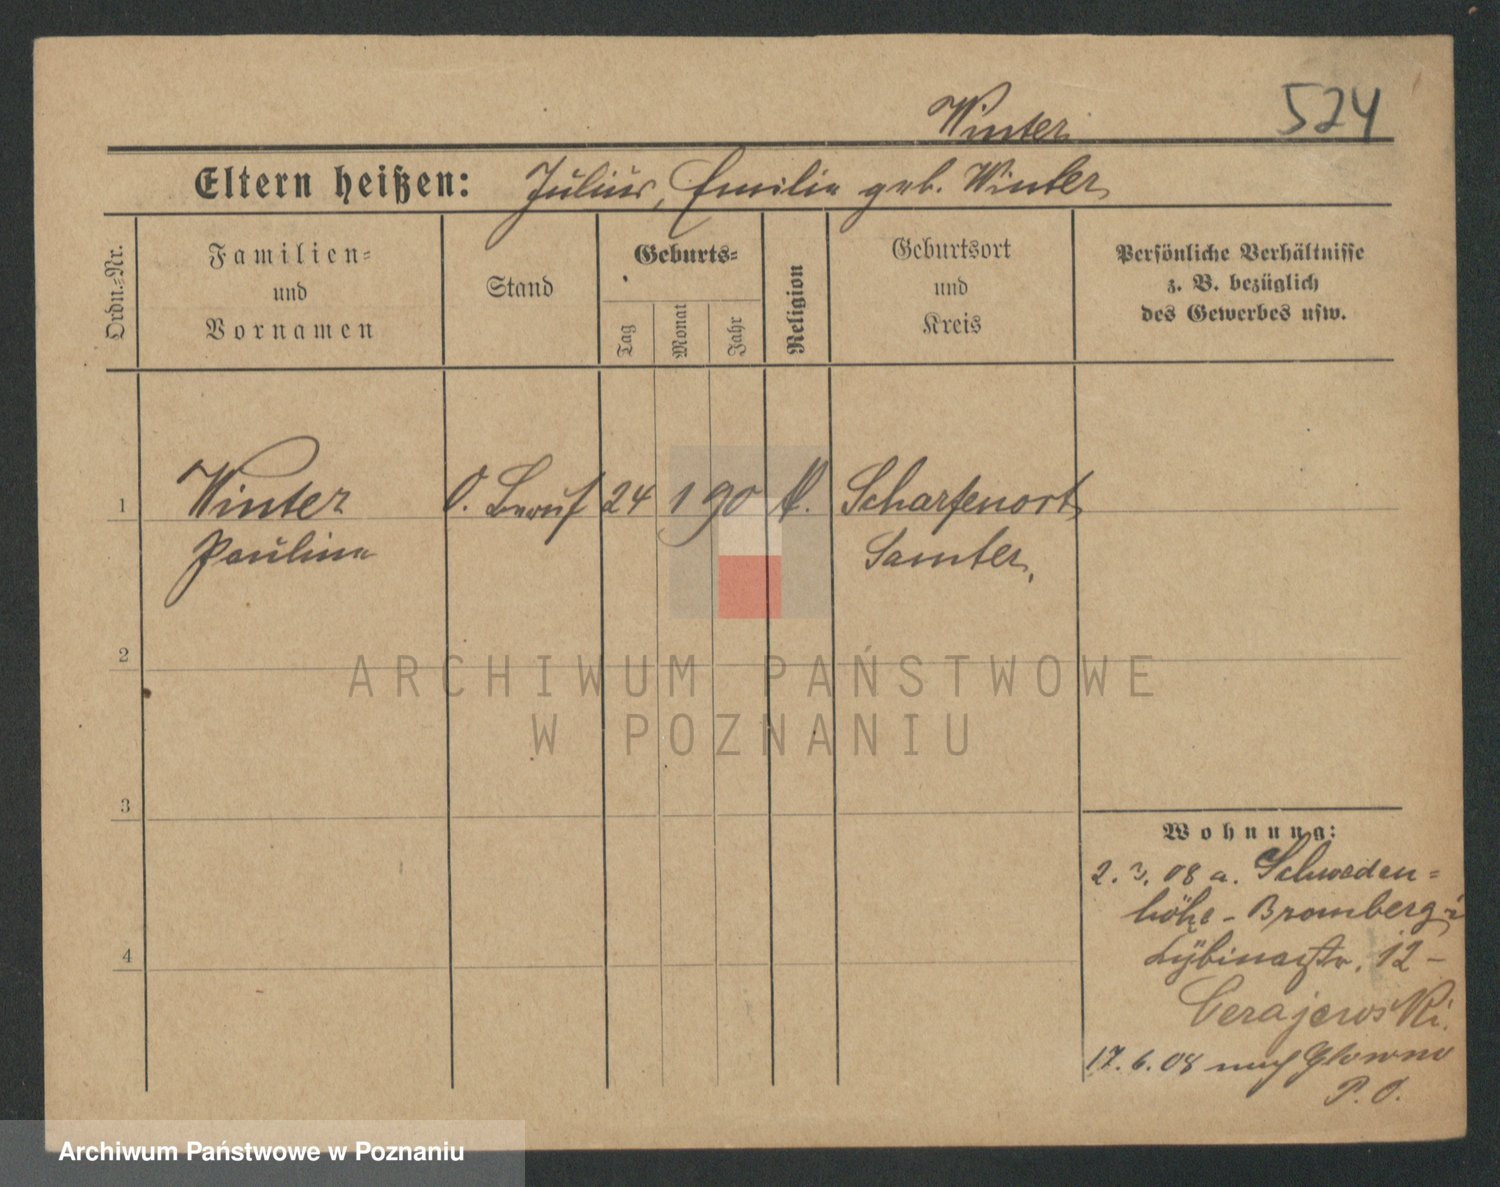 Winter
524
Eltern heißen: Julius, Emilie geb. Winter
Ordn.-Nr.
Familien-
und
Vornamen
Stand
Geburts-
Tag
Monat
Jahr
Religion
Geburtsort
und
Kreis
Persönliche Verhältnisse
z. B. bezüglich
des Gewerbes usw.
1
Winter O. Beruf 24 1 90 Scharfenort
Pauline Samter
2
ARCHIWUM PAŃSTWOWE
W POZNANIU
3
4
Wohnung:
2. 3. 08 a. Schweden-
höhe - Bromberg
12 -
Cerajewski.
17. 6. 08 nach Glowno
P. O.
Archiwum Państwowe w Poznaniu